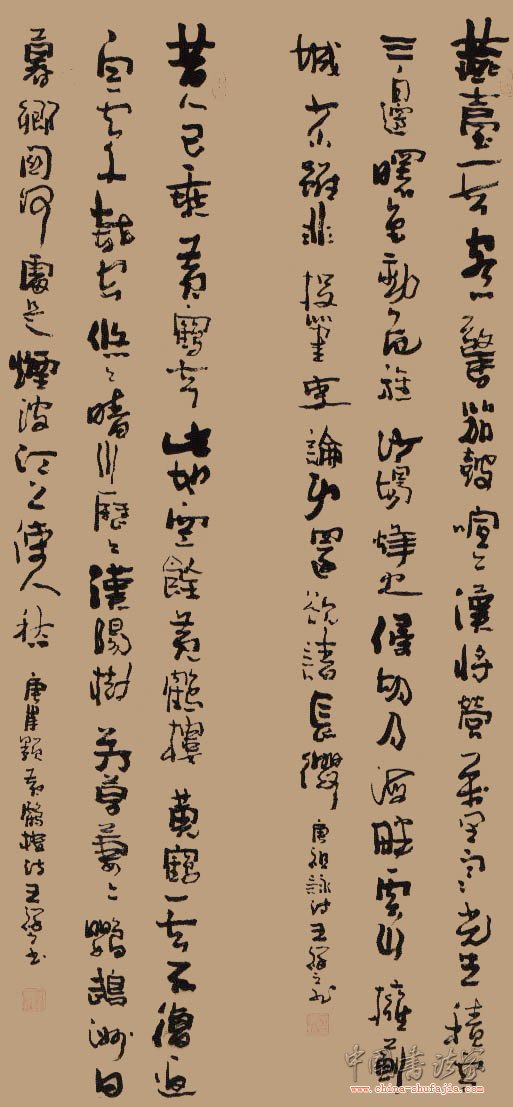 燕臺一去客心驚笳鼓喧々漢將營萬里寒光生積雪
三邊曙色動危旌沙場烽火侵胡月海畔雲山擁薊
城少小雖非投筆吏論功還欲請長纓
唐祖詠詩王
昔人已乘黃鶴去此地空餘黃鶴樓黃鶴一去不復返
白雲千載空悠々晴川歷々漢陽樹芳草萋々鸚鵡洲日
暮鄉國何處是煙波江上使人愁
唐崔顥黃鶴樓詩王書
中國書法家
www.china-shufajia.com